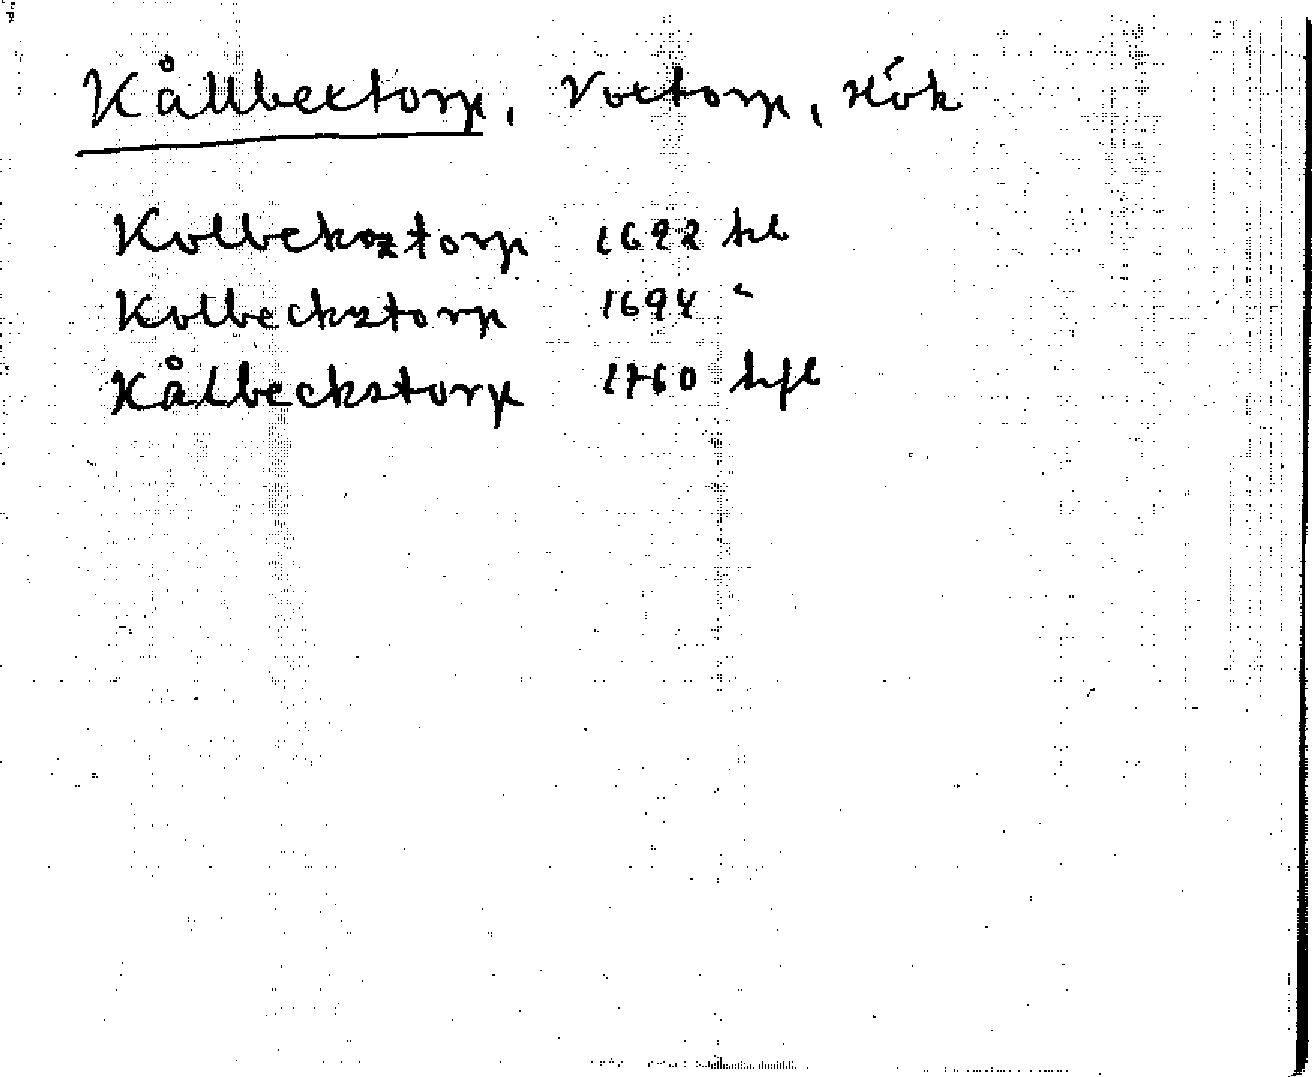 Kållbextorp, Voxtorp, Hök
Kolbekoztorp 1692 hl
Kolbecksztorp 1694 "
Kålbeckstorp 1760 hfl